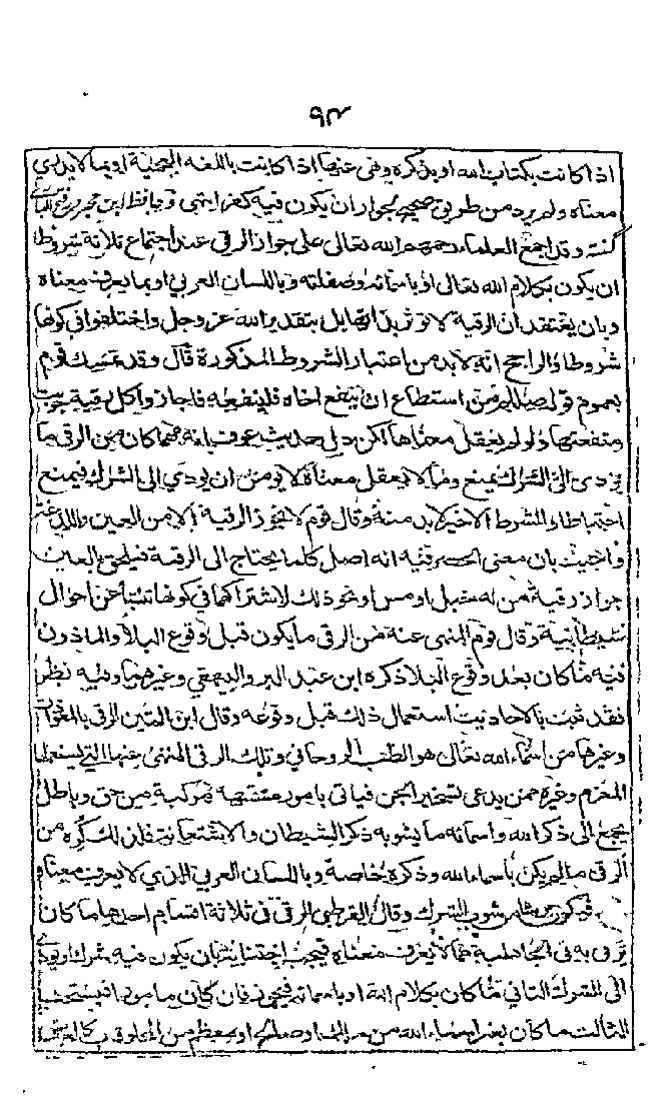 ٩٣
اذا كانت بكتاب الله او بذكره ونهى عنها اذا كانت باللغه العجمية او بما لا يدرى
معناه ولم يرد من طريق صحيح لجواز ان يكون فيه كفر انتهى وقال الحافظ ابن حجر فى فتح البارى
وقد اجمع العلماء رحمهم الله تعالى على جواز الرقى عند اجتماع ثلاثة شروط
ان يكون بكلام الله تعالى او باسمائه وصفاته وباللسان العربى او بما يعرف معناه
وبان يعتقد ان الرقية لا توثر بذاتها بل بتقدير الله عز وجل واختلفوا فى كونها
شروطا والراجح انه لا بد من اعتبار الشروط المذكورة قال وقد تمسك قوم
بعموم قوله صلى من استطاع ان ينفع اخاه فلينفعه فاجازوا كل رقية جربت
منفعتها ولو لم يعقل معناها لكن دل حديث عوف انه مهما كان من الرقى ما
يودى الى الشرك يمنع وما لا يعقل معناه لا يومن ان يودي الى الشرك فيمنع
احتياطا والشرط الاخير لا بد منه وقال قوم لا تجوز الرقية الا من العين واللدغة
واجيب بان معنى الحصر فيه انه اصل كلما يحتاج الى الرقية فيلحق بالعين
جواز رقية من به خبل او مس او نحو ذلك لاشتراكها فى كونها تنشأ عن احوال
شيطانية وقال قوم المنهى عنه من الرقى ما يكون قبل وقوع البلا والماذون
فيه ما كان بعد وقوع البلا ذكره ابن عبد البر والبيهقي وغيرهما وفيه نظر
فقد ثبت بالاحاديث استعمال ذلك قبل وقوعه وقال ابن التين الرقى بالمعوذات
وغيرها من اسماء الله تعالى هو الطب الروحانى وتلك الرقى المنهى عنها التى يستعملها
المعزم وغيره ممن يدعى تسخير الجن فياتى بامور مشتبهه مركبة من حق وباطل
يجمع الى ذكر الله واسمائه ما يشوبه ذكر الشيطان والاستعانة فلذلك كره من
الرقى ما لم يكن باسماء الله وذكره خاصة وباللسان العربى الذي لا يعرف معناه
ليكون بريئا من شوب الشرك وقال القرطبى الرقى ثلاثة اقسام احدها ما كان
يرقى به فى الجاهلية مما لا يعرف معناه فيجب اجتنابه لئلا يكون فيه شرك او يودى
الى الشرك الثانى ما كان بكلام الله او باسمائه فيجوز فان كان ماثورا فيستحب
الثالث ما كان بغير اسماء الله من ملك او صالح او معظم من المخلوق كالعرش